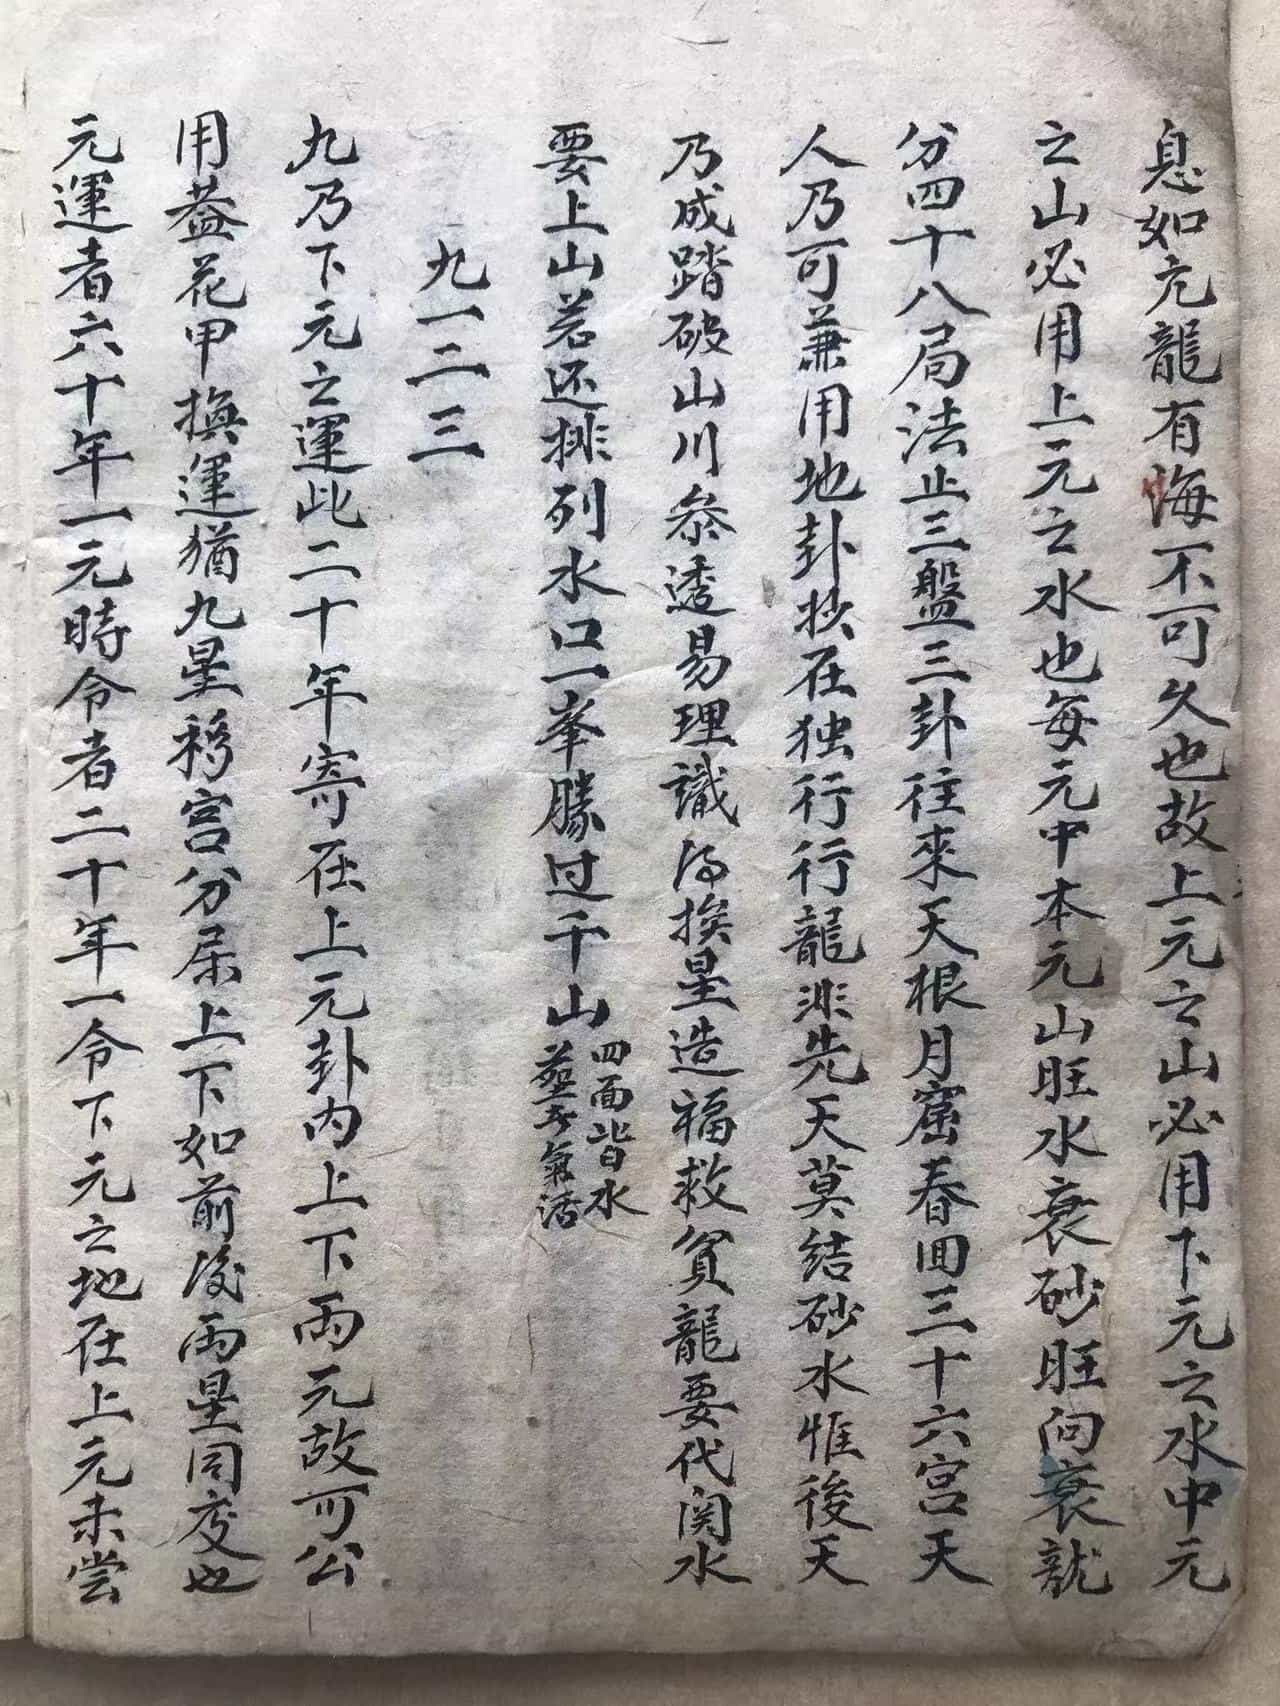 息如亢龍有悔不可久也故上元之山必用下元之水中元
之山必用上元之水也每元中本元山旺水衰砂旺向衰就
分四十八局法止三盤三卦往來天根月窟春囬三十六宮天
人乃可兼用地卦挨在独行行龍非先天莫结砂水惟後天
乃成踏破山川叅透易理識得挨星造福救貧龍要代関水
要上山若还排列水口一峯勝过千山
四面皆水
氣活
九一二三
九乃下元之運此二十年寄在上元卦内上下兩元故可公
用葢花甲換運猶九星移宮分屈上下如前後兩星同度也
元運者六十年一元時令者二十年一令下元之地在上元未尝